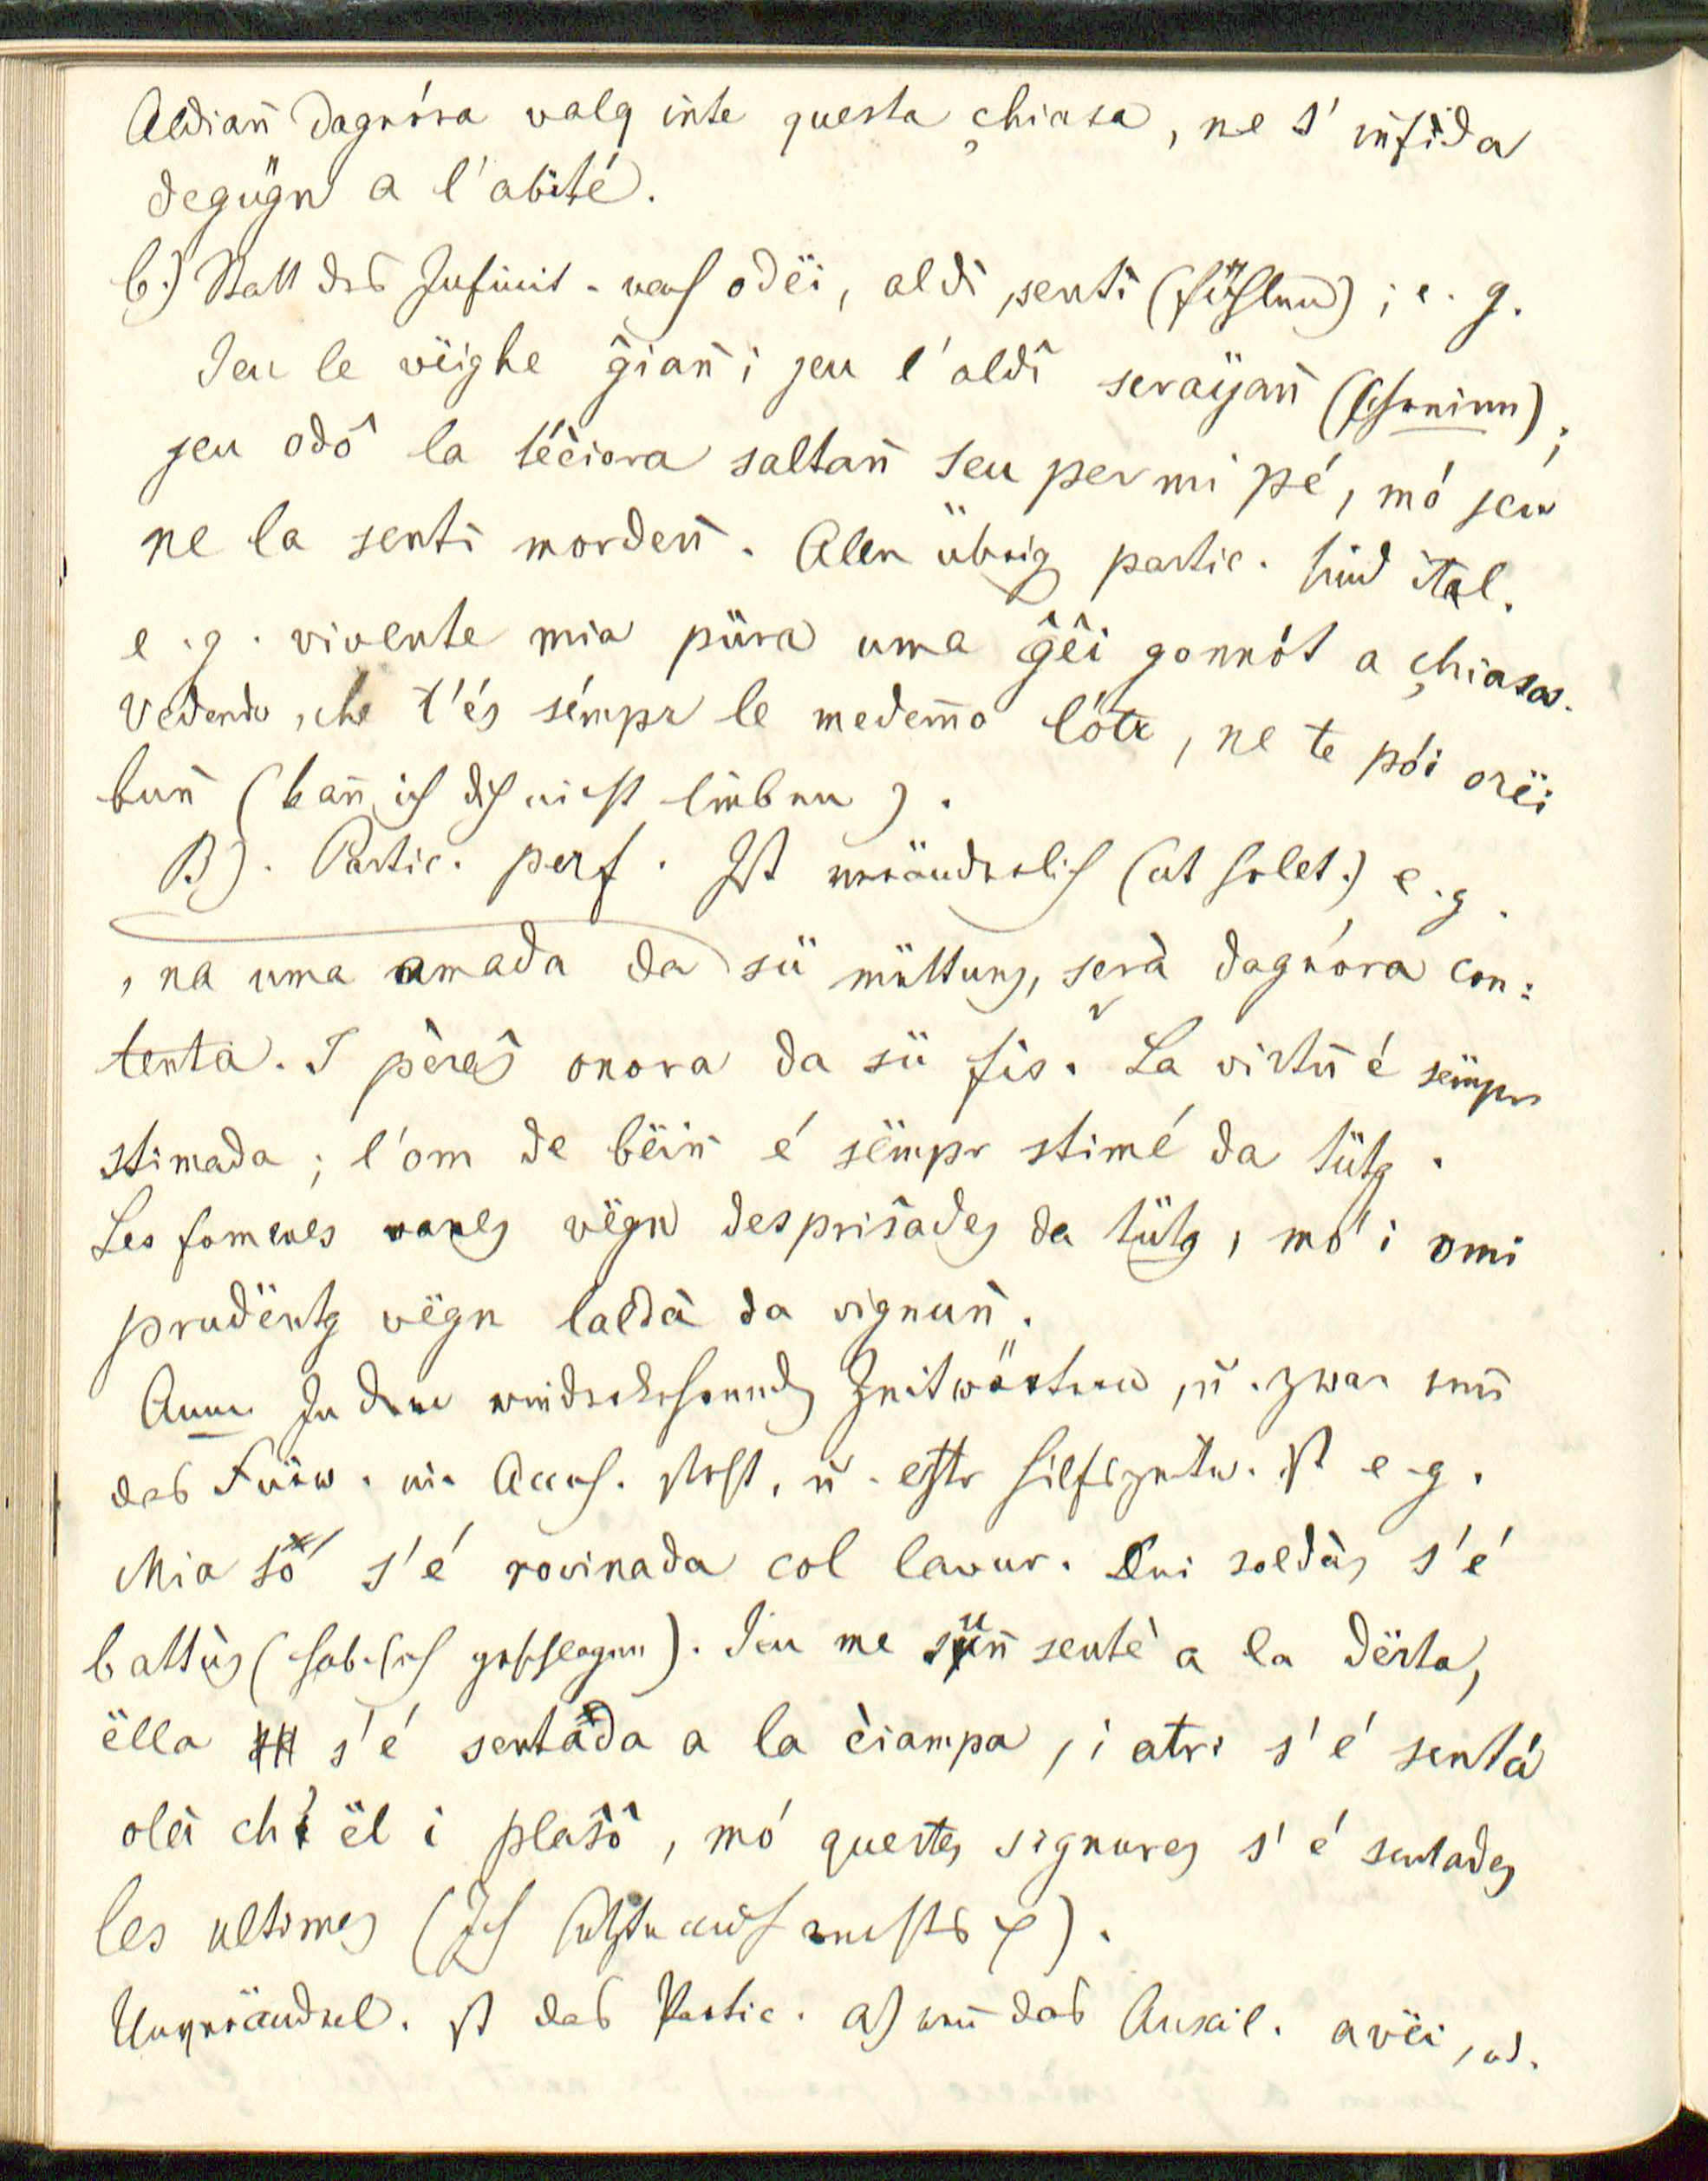 Aldiañ dagnóra valg inte questa çhiasa, ne s' infida
degügn a l'abité.
b.) Statt des Infinit. nach odëi, aldì, sentì (fühlen); e. g.
Jeu le vëighe g̑iañ; jeu l'aldî seraÿañ (schreien);
jeu odô la téciora saltañ seu per mi pé, mó jeu
ne la sentî mordeñ. Alle übrig partic. sind ital.
e. g. vivente mia püra uma g̑êi gonnót a çhiasa.
Vedendo, che t'és sémpr le medem̄o lótr, ne te pói orëi
buñ (kan̄ ich dich nicht lieben).
B). Partic. perf. Ist veränderlich (ut solet.) e. g.
, na uma amada da sü müttung, serà dagnóra con:
tenta. I pèreŝ onora da sü fis. La virtü é sëmpr
stimada; l'om de bëiñ é sëmpr stimé da tütg.
Les fomenes vanes vëgn desprisades da tütg, mó i omi
prudëntg vëgn laldà da vignuñ.
Anm. In den wiederkehrend Zeitwörtern, u. zwar wen̄
das Fürw. im Accus. steht, u. esser Hilfszeitw. ist e. g.
Mia só s'é rovinada col lavur. Dui soldàs s'é
battüs (hab. sich geschlagen). Jeu me suñ sentè a la dërta,
ëlla s'é sentada a la ciampa, i atri s'é sentá
olà ch' ël i plaŝô, mó questes signures s'é sentades
les ultimes (Ich setzte mich rechts ).
Unveränderl. ist das Partic. a) wen̄ das Auxil. avëi, od.